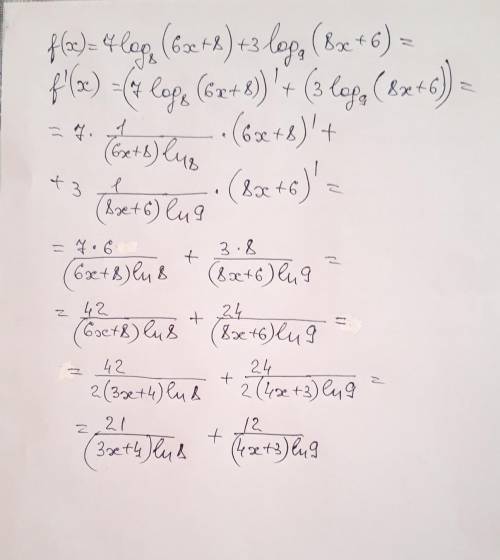 f(x)=7log₈(6x+8)+3log₉(8x+6)=
f'(x)=(7log₈(6x+8))'+(3log₉(8x+6))=
=7·1/((6x+8)ln8)·(6x+8)'+
+3 1/((8x+6)ln9)·(8x+6)'=
=7·6/((6x+8)ln8)+3·8/((8x+6)ln9)=
=42/((6x+8)ln8)+24/((8x+6)ln9)=
=42/(2(3x+4)ln8)+24/(2(4x+3)ln9)=
=21/((3x+4)ln8)+12/((4x+3)ln9)